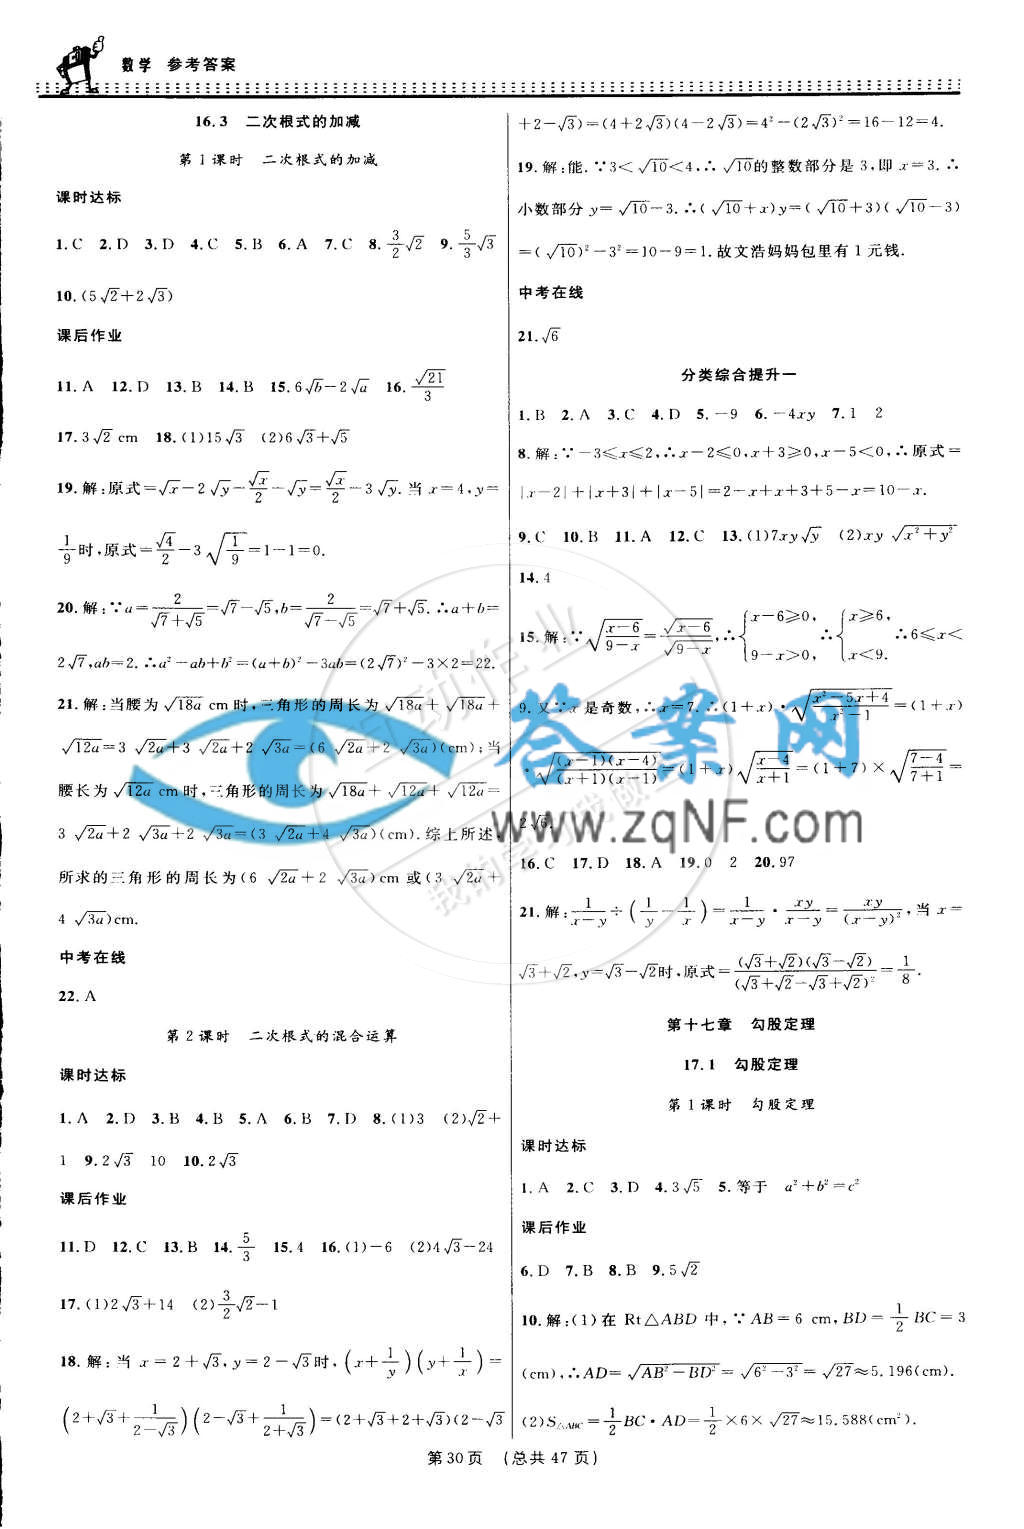 数学 参考答案
16.3 二次根式的加减
第1课时 二次根式的加减
课时达标
1.C 2.D 3.D 4.C 5.B 6.A 7.C 8.3/2√2 9.5/3√3
10.(5√2+2√3)
课后作业
11.A 12.D 13.B 14.B 15.6√b-2√a 16.√21/3
17.3√2 cm 18.(1)15√3 (2)6√3+√5
19.解:原式=√x-2√y-√x/2-√y=√x/2-3√y.当x=4,y=
1/9时,原式=√4/2-3√(1/9)=1-1=0.
20.解:∵a=2/(√7+√5)=√7-√5,b=2/(√7-√5)=√7+√5.∴a+b=
2√7,ab=2.∴a²-ab+b²=(a+b)²-3ab=(2√7)²-3×2=22.
21.解:当腰为√18a cm时,三角形的周长为√18a+√18a+
√12a=3√2a+3√2a+2√3a=(6√2a+2√3a)(cm);当
腰长为√12a cm时,三角形的周长为√18a+√12a+√12a=
3√2a+2√3a+2√3a=(3√2a+4√3a)(cm).综上所述,
所求的三角形的周长为(6√2a+2√3a)cm或(3√2a+
4√3a)cm.
中考在线
22.A
第2课时 二次根式的混合运算
课时达标
1.A 2.D 3.B 4.B 5.A 6.B 7.D 8.(1)3 (2)√2+
1 9.2√3 10 10.2√3
课后作业
11.D 12.C 13.B 14.5/3 15.4 16.(1)-6 (2)4√3-24
17.(1)2√3+14 (2)3/2√2-1
18.解:当x=2+√3,y=2-√3时,(x+1/y)(y+1/x)=
(2+√3+1/(2-√3))(2-√3+1/(2+√3))=(2+√3+2+√3)(2-√3
+2-√3)=(4+2√3)(4-2√3)=4²-(2√3)²=16-12=4.
19.解:能.∵3<√10<4,∴√10的整数部分是3,即x=3.∴
小数部分y=√10-3.∴(√10+x)y=(√10+3)(√10-3)
=(√10)²-3²=10-9=1.故文浩妈妈包里有1元钱.
中考在线
21.√6
分类综合提升一
1.B 2.A 3.C 4.D 5.-9 6.-4xy 7.1 2
8.解:∵-3≤x≤2,∴x-2≤0,x+3≥0,x-5<0,∴原式=
|x-2|+|x+3|+|x-5|=2-x+x+3+5-x=10-x.
9.C 10.B 11.A 12.C 13.(1)7xy√y (2)xy√(x²+y²)
14.4
15.解:∵√((x-6)/(9-x))=√(x-6)/√(9-x),∴{x-6≥0, 9-x>0, ∴{x≥6, x<9. ∴6≤x<
9.又∵x是奇数,∴x=7.∴(1+x)·√((x²-5x+4)/(x²-1))=(1+x)
·√((x-1)(x-4)/(x+1)(x-1))=(1+x)√((x-4)/(x+1))=(1+7)×√((7-4)/(7+1))=
2√6.
16.C 17.D 18.A 19.0 2 20.97
21.解:1/(x-y)÷(1/y-1/x)=1/(x-y)·xy/(x-y)=xy/(x-y)²,当x=
√3+√2,y=√3-√2时,原式=(√3+√2)(√3-√2)/(√3+√2-√3+√2)²=1/8.
第十七章 勾股定理
17.1 勾股定理
第1课时 勾股定理
课时达标
1.A 2.C 3.D 4.3√5 5.等于 a²+b²=c²
课后作业
6.D 7.B 8.B 9.5√2
10.解:(1)在Rt△ABD中,∵AB=6 cm,BD=1/2BC=3
(cm),∴AD=√(AB²-BD²)=√(6²-3²)=√27≈5.196(cm).
(2)S△ABC=1/2BC·AD=1/2×6×√27≈15.588(cm²).
第30页 (总共47页)
答案网
www.zqNF.com